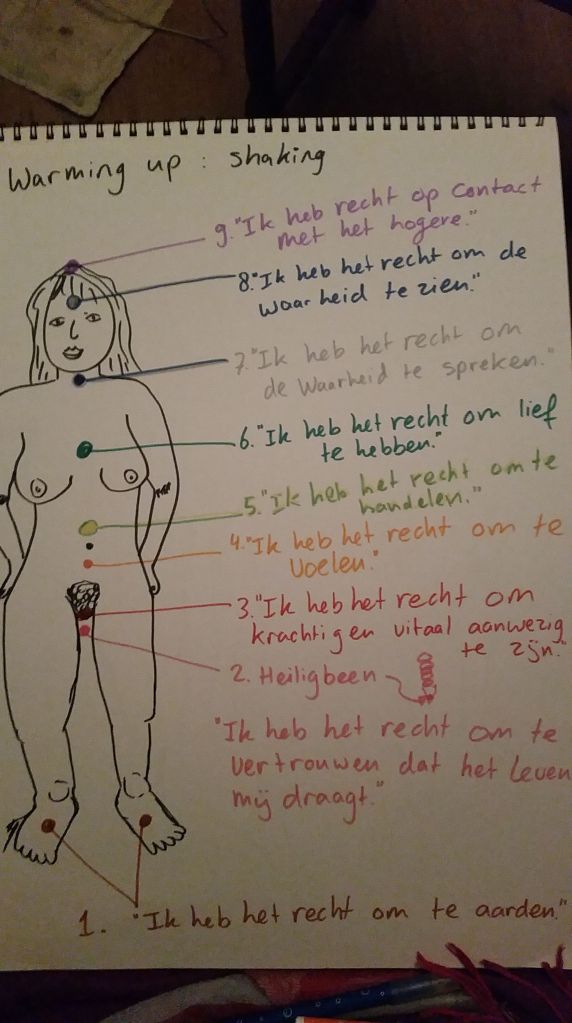 Warming up : shaking
9. "Ik heb recht op contact
met het hogere."
8. "Ik heb het recht om de
waarheid te zien."
7. "Ik heb het recht om
de waarheid te spreken."
6. "Ik heb het recht om lief
te hebben."
5. "Ik heb het recht om te
handelen."
4. "Ik heb het recht om te
voelen."
3. "Ik heb het recht om
krachtig en vitaal aanwezig
te zijn."
2. Heiligbeen
"Ik heb het recht om te
vertrouwen dat het leven
mij draagt."
1. "Ik heb het recht om te aarden."